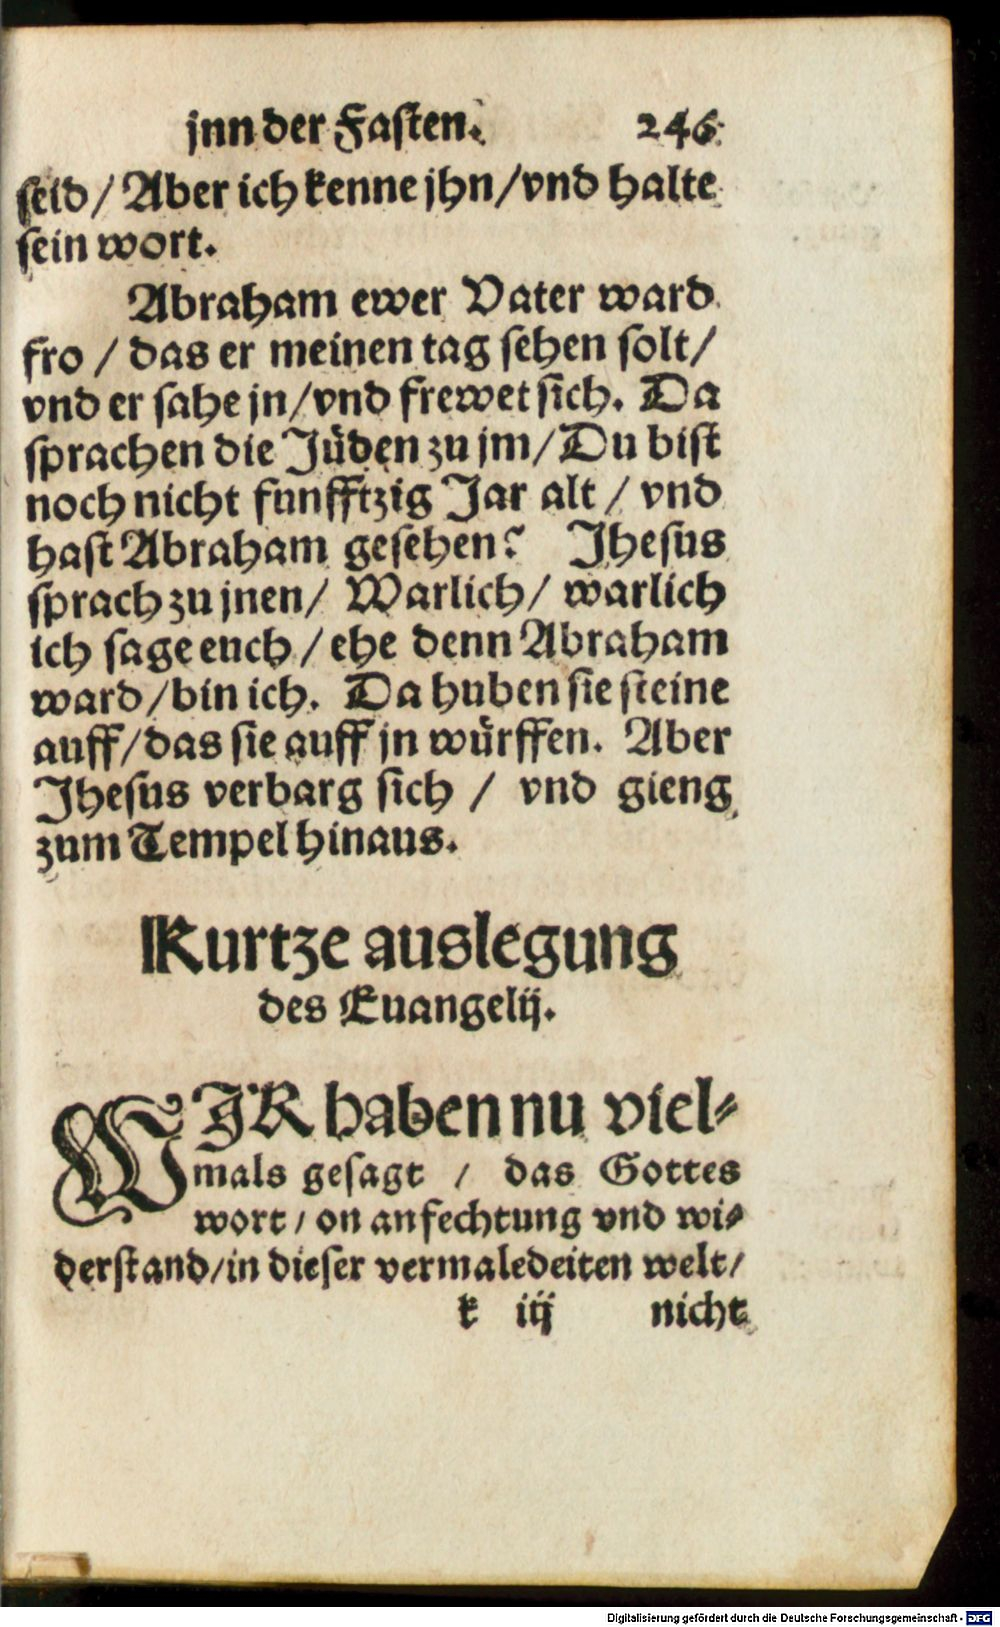 jnn der Fasten. 246.
seid / Aber ich kenne jhn / vnd halte
sein wort.
Abraham ewer Vater ward
fro / das er meinen tag sehen solt /
vnd er sahe jn / vnd frewet sich. Da
sprachen die Jüden zu jm / Du bist
noch nicht funfftzig Jar alt / vnd
hast Abraham gesehen? Jhesus
sprach zu jnen / Warlich / warlich
ich sage euch / ehe denn Abraham
ward / bin ich. Da huben sie steine
auff / das sie auff jn würffen. Aber
Jhesus verbarg sich / vnd gieng
zum Tempel hinaus.
Kurtze auslegung
des Euangelij.
WJR haben nu viel-
mals gesagt / das Gottes
wort / on anfechtung vnd wi-
derstand / in dieser vermaledeiten welt /
k iij nicht
Digitalisierung gefördert durch die Deutsche Forschungsgemeinschaft - DFG